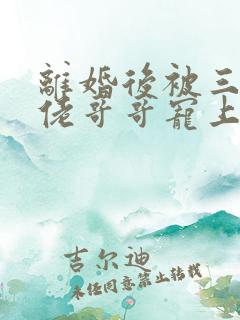 離婚後被三
佬哥哥寵上
吉尔迪
未经同意禁止转载